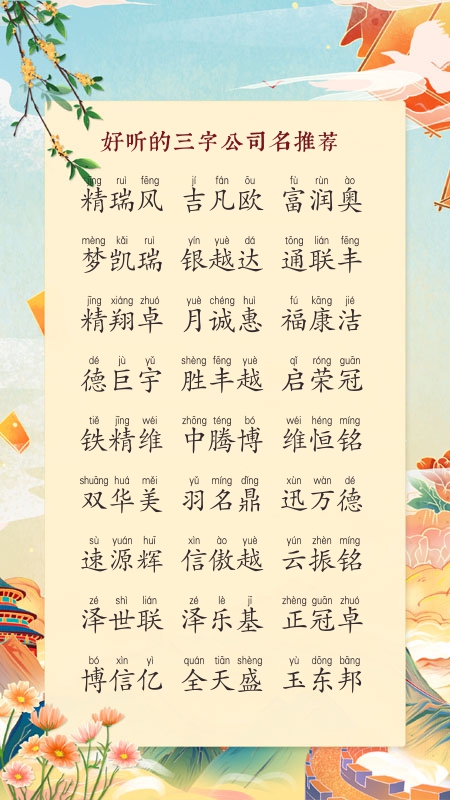 好听的三字公司名推荐
jīng ruì fēng jí fán ōu fù rùn ào
精瑞风 吉凡欧 富润奥
mèng kǎi ruì yín yuè dá tōng lián fēng
梦凯瑞 银越达 通联丰
jīng xiáng zhuó yuè chéng huì fú kāng jié
精翔卓 月诚惠 福康洁
dé jù yǔ shèng fēng yuè qǐ róng guān
德巨宇 胜丰越 启荣冠
tiě jīng wéi zhōng téng bó wéi héng míng
铁精维 中腾博 维恒铭
shuāng huá měi yǔ míng dǐng xùn wàn dé
双华美 羽名鼎 迅万德
sù yuán huī xìn ào yuè yún zhèn míng
速源辉 信傲越 云振铭
zé shì lián zé lè jī zhèng guān zhuó
泽世联 泽乐基 正冠卓
bó xìn yì quán tiān shèng yù dōng bāng
博信亿 全天盛 玉东邦